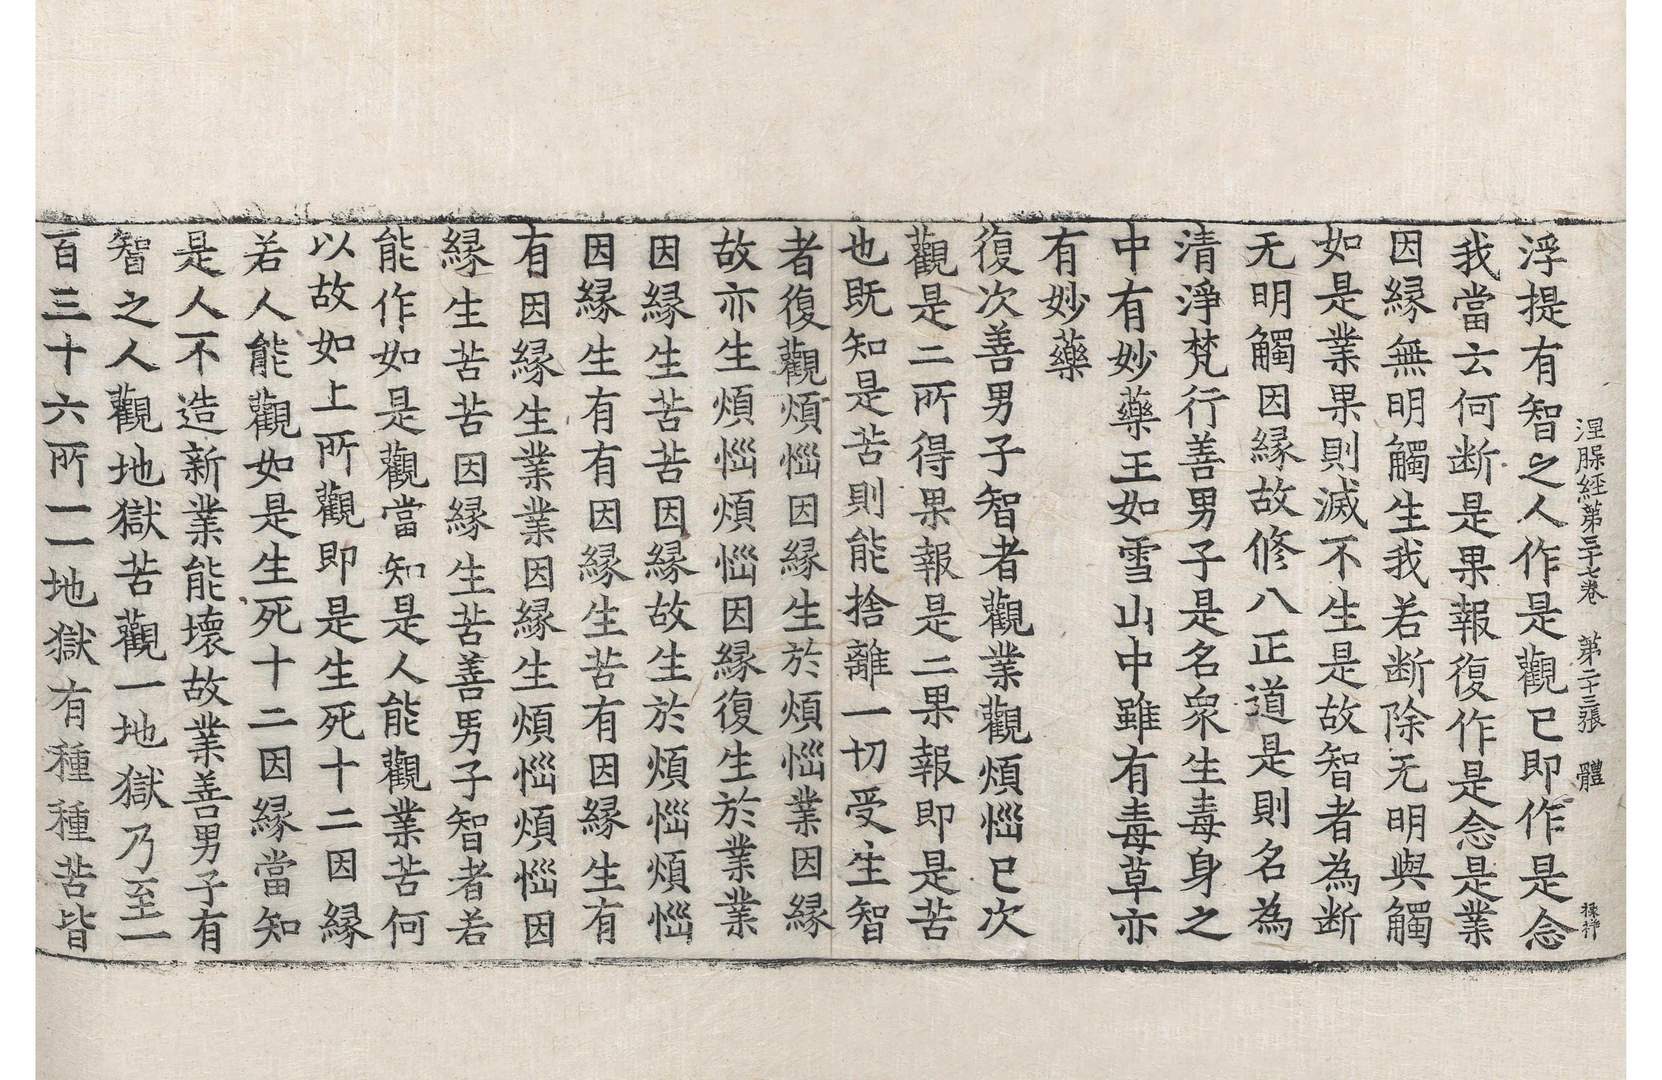 涅槃經第三十七卷　第二十三張　體
浮提有智之人作是觀已即作是念
我當云何断是果報復作是念是業
因縁無明觸生我若断除无明與觸
如是業果則滅不生是故智者為断
无明觸因縁故修八正道是則名為
清淨梵行善男子是名衆生毒身之
中有妙藥王如雪山中雖有毒草亦
有妙藥
復次善男子智者觀業觀煩惱已次
觀是二所得果報是二果報即是苦
也既知是苦則能捨離一切受生智
者復觀煩惱因縁生於煩惱業因縁
故亦生煩惱煩惱因縁復生於業業
因縁生苦苦因縁故生於煩惱煩惱
因縁生有有因縁生苦有因縁生有
有因縁生業業因縁生煩惱煩惱因
縁生苦苦因縁生苦善男子智者若
能作如是觀當知是人能觀業苦何
以故如上所觀即是生死十二因縁
若人能觀如是生死十二因縁當知
是人不造新業能壞故業善男子有
智之人觀地獄苦觀一地獄乃至一
百三十六所一一地獄有種種苦皆